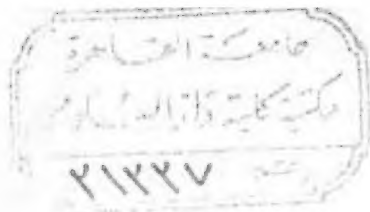 جامعة القاهرة
مكتبة كلية دار العلوم
رقم ٢١٢٢٧